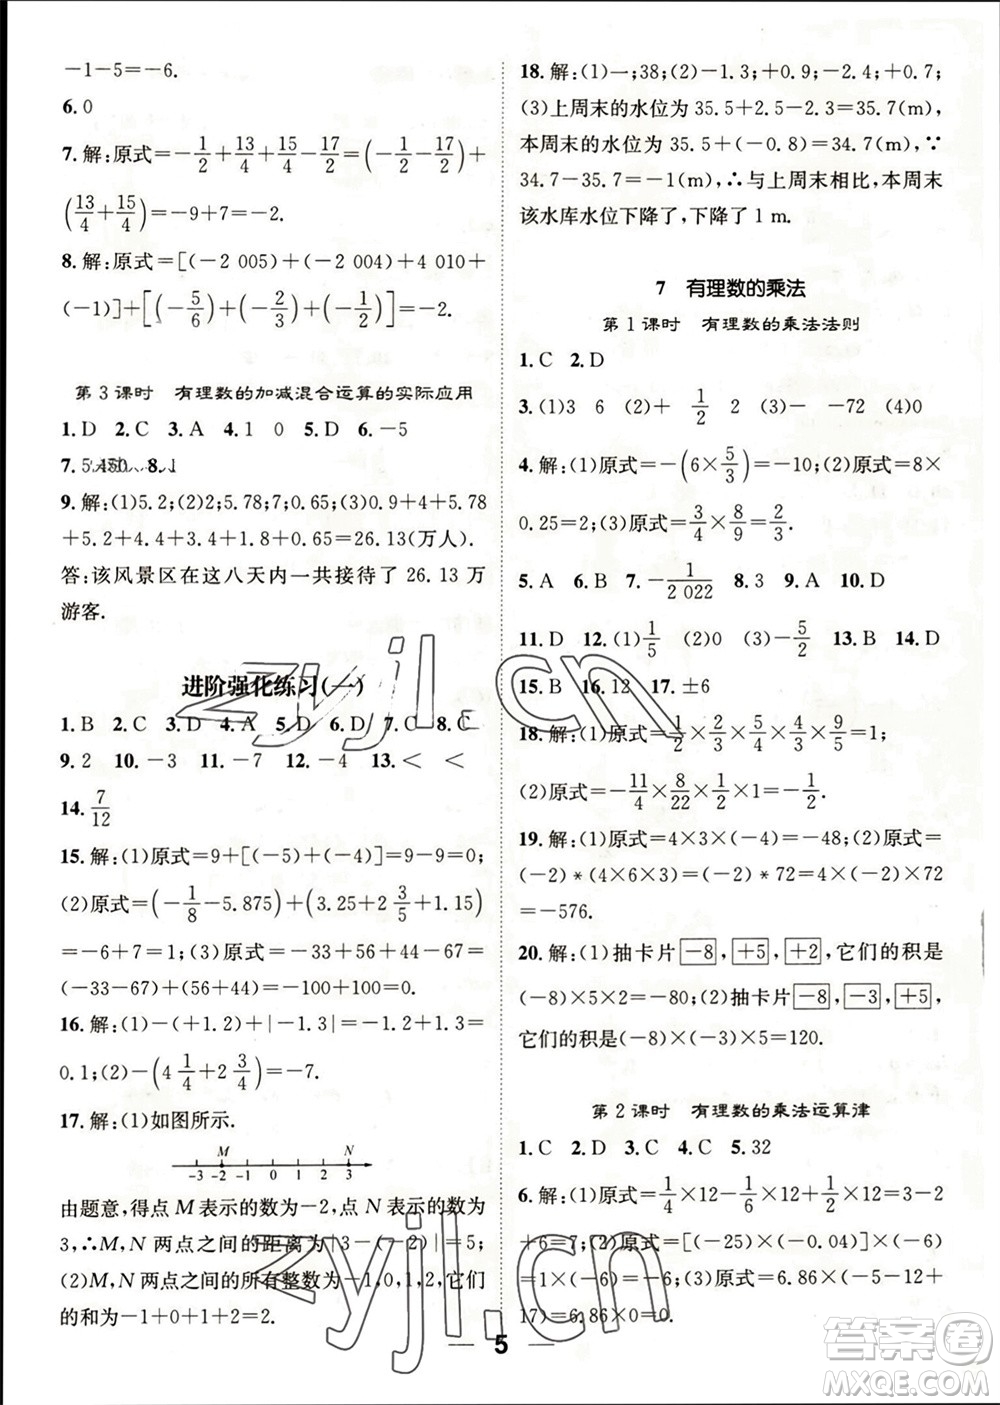 -1-5=-6.
6.0
7.解:原式=-1/2+13/4+15/4-17/2=(-1/2-17/2)+
(13/4+15/4)=-9+7=-2.
8.解:原式=[(-2 005)+(-2 004)+4 010+
(-1)]+[(-5/6)+(-2/3)+(-1/2)]=-2.
第3课时 有理数的加减混合运算的实际应用
1.D 2.C 3.A 4.1 0 5.D 6.-5
7.5 8.1
9.解:(1)5.2;(2)2;5.78;7;0.65;(3)0.9+4+5.78
+5.2+4.9+4.7+0+0.65=26.13(万人).
答:该风景区在这八天内一共接待了 26.13 万
游客.
进阶强化练习(一)
1.B 2.C 3.D 4.A 5.D 6.D 7.C 8.C
9.2 10.-3 11.-7 12.-4 13.< <
14.7/12
15.解:(1)原式=9+[(-5)+(-4)]=9-9=0;
(2)原式=(-1/8-5.875)+(3.25+2 3/5+1.15)
=-6+7=1;(3)原式=-33+56+44-67=
(-33-67)+(56+44)=-100+100=0.
16.解:(1)-(+1.2)+|-1.3|=-1.2+1.3=
0.1;(2)-(4 1/4+2 3/4)=-7.
17.解:(1)如图所示.
M N
-3 -2 -1 0 1 2 3
由题意,得点 M 表示的数为-2,点 N 表示的数为
3,∴M,N 两点之间的距离为|3-(-2)|=5;
(2)M,N 两点之间的所有整数为-1,0,1,2,它们
的和为-1+0+1+2=2.
18.解:(1)一;38;(2)-1.3;+0.9;-2.4;+0.7;
(3)上周末的水位为 35.5+2.5-2.3=35.7(m),
本周末的水位为 35.5+(-0.8)=34.7(m),∵
34.7-35.7=-1(m),∴与上周末相比,本周末
该水库水位下降了,下降了 1 m.
7 有理数的乘法
第1课时 有理数的乘法法则
1.C 2.D
3.(1)3 6 (2)+ 1/2 2 (3)- -72 (4)0
4.解:(1)原式=-(6×5/3)=-10;(2)原式=8×
0.25=2;(3)原式=3/4×8/9=2/3.
5.A 6.B 7.-1/2 022 8.3 9.A 10.D
11.D 12.(1)1/5 (2)0 (3)-5/2 13.B 14.D
15.B 16.12 17.±6
18.解:(1)原式=1/2×2/3×5/4×4/3×9/5=1;
(2)原式=-11/4×8/22×1/2=-1/2.
19.解:(1)原式=4×3×(-4)=-48;(2)原式=
(-2)*(4×6×3)=(-2)*72=4×(-2)×72
=-576.
20.解:(1)抽卡片 -8 , +5 , +2 ,它们的积是
(-8)×5×2=-80;(2)抽卡片 -8 , -3 , +5 ,
它们的积是(-8)×(-3)×5=120.
第2课时 有理数的乘法运算律
1.C 2.D 3.C 4.C 5.32
6.解:(1)原式=1/4×12-1/6×12+1/2×12=3-2
+6=7;(2)原式=[(-25)×(-0.04)]×(-6)
=1×(-6)=-6;(3)原式=6.86×(-5-12+
17)=6.86×0=0.
5
zyjl.cn
zyjl.cn
答案圈
MXQE.COM